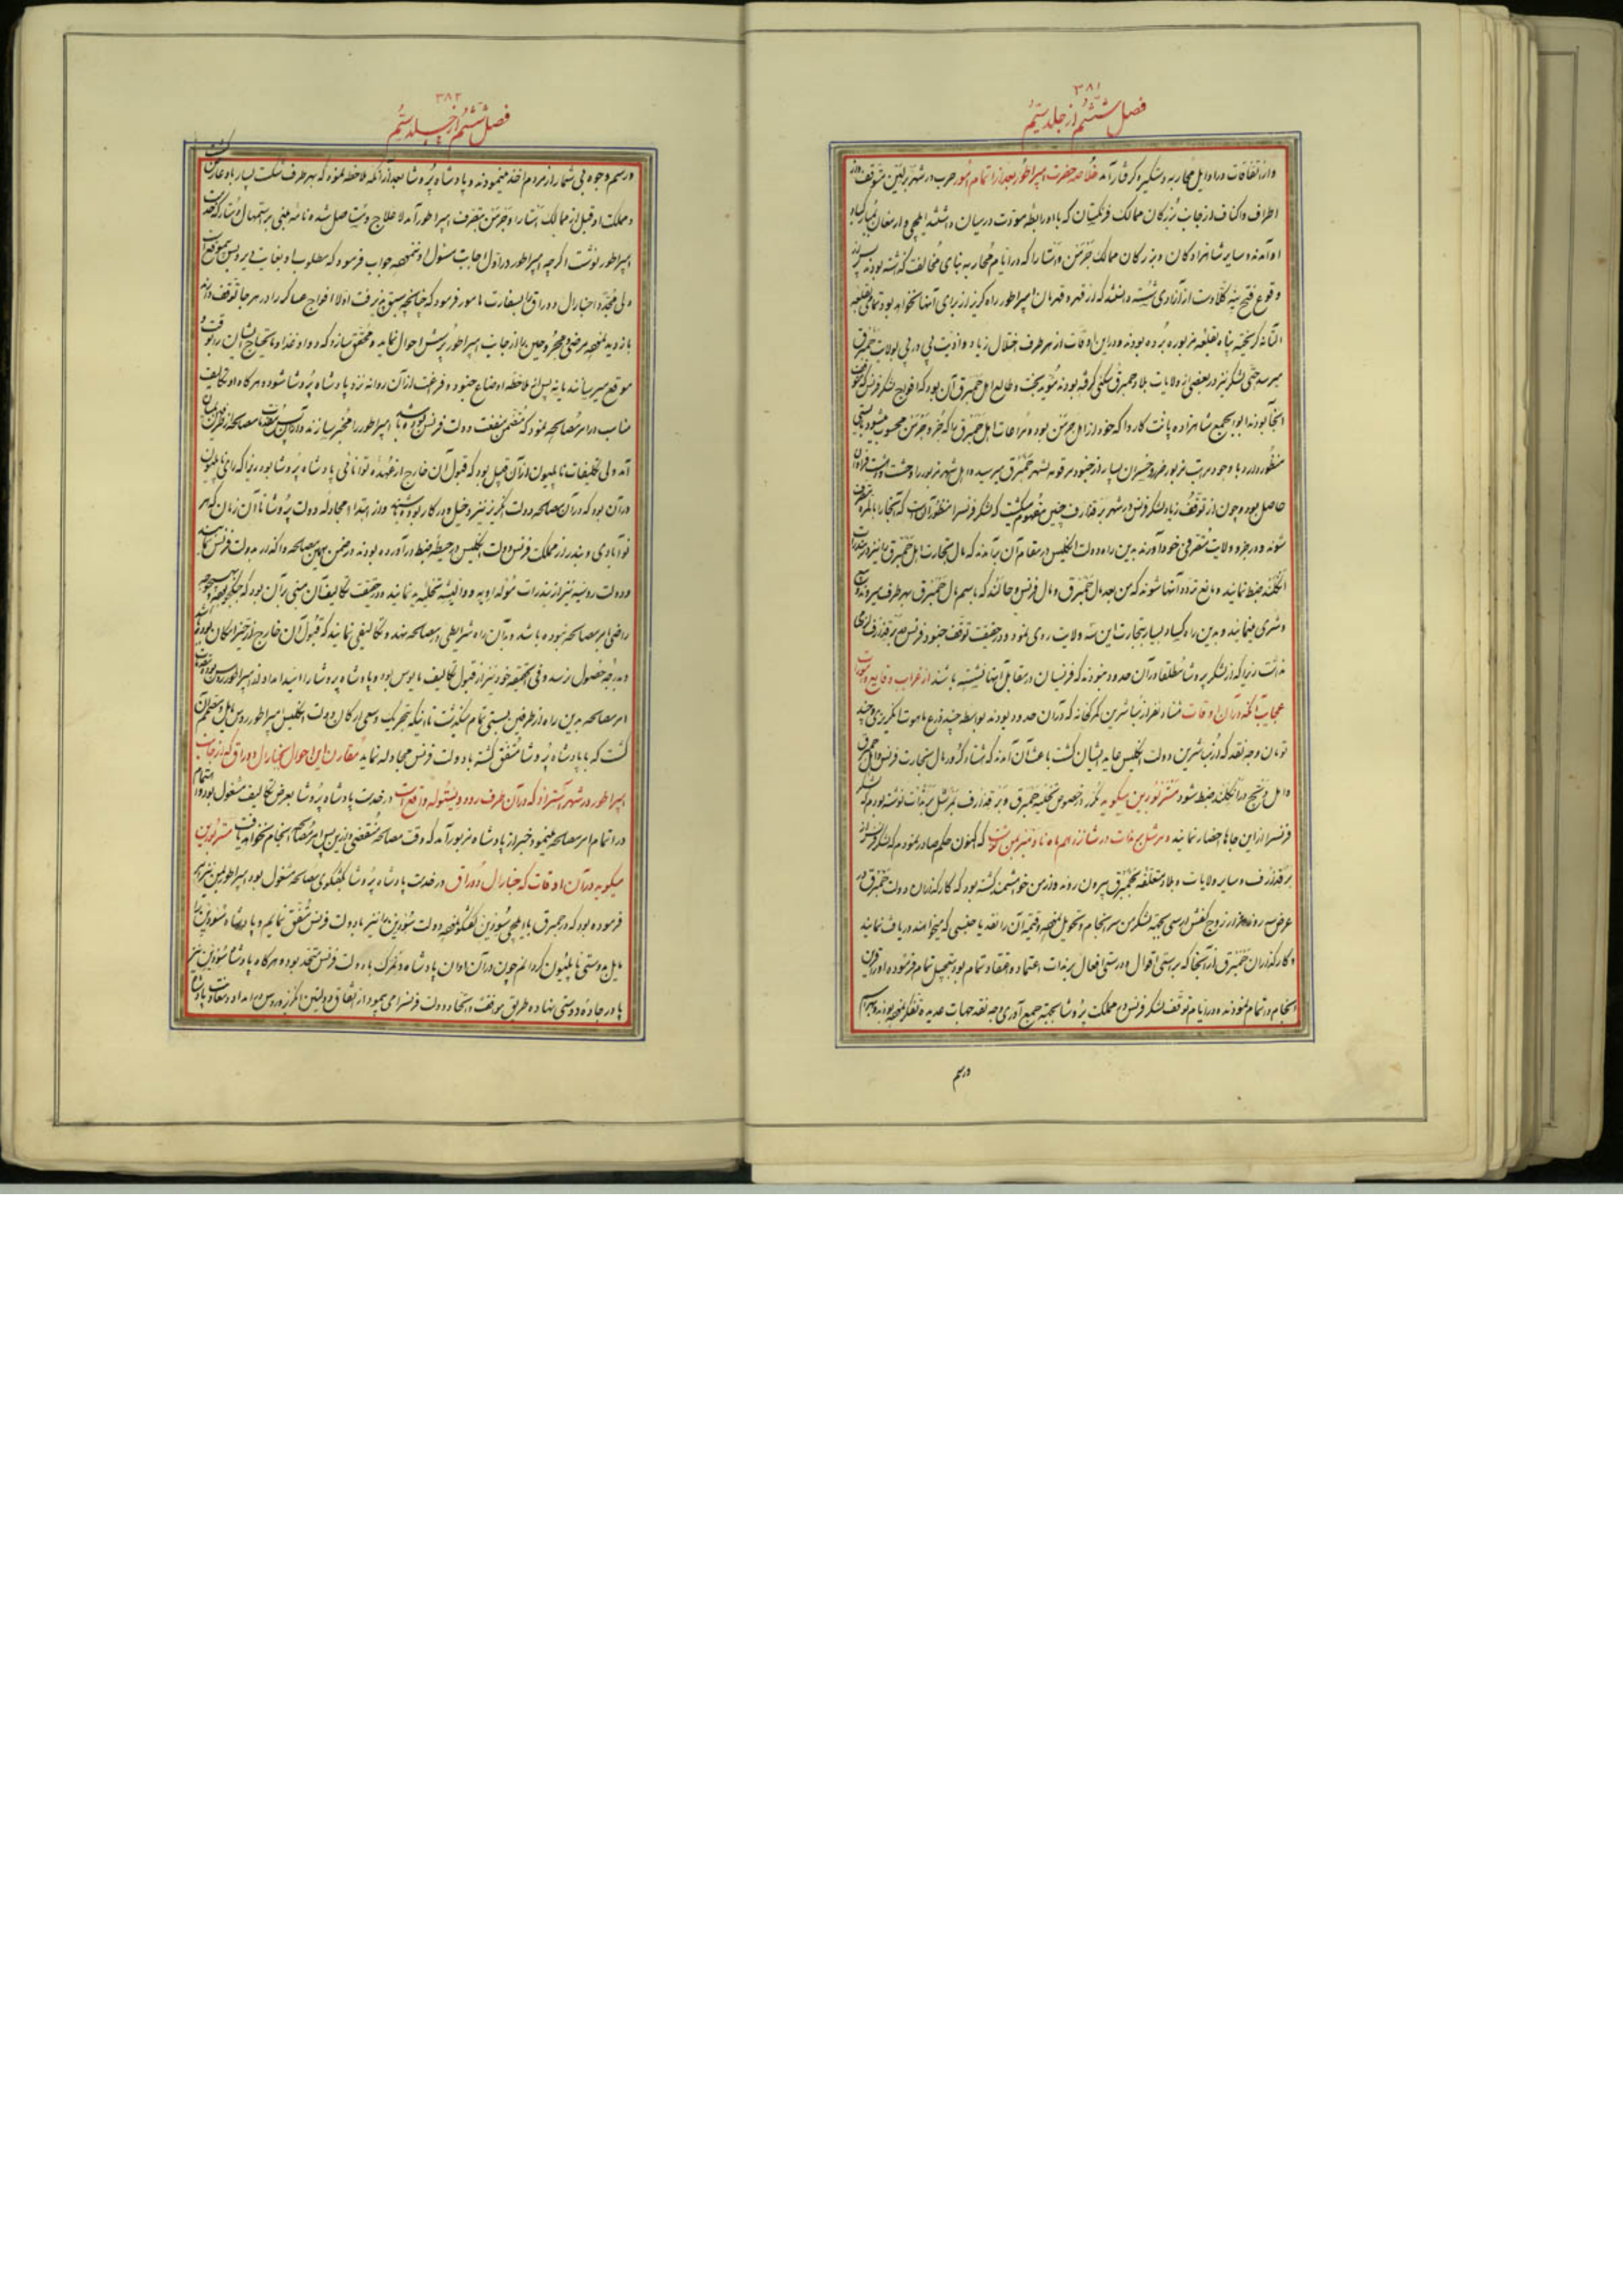 ۳۸۱
فصل ششم از جلد سیم
و از اتفاقات در اوایل محاربه دستگیر و گرفتار آمد خلاصه حضرت امپراطور بعد از اتمام امور حرب در شهر برلین متوقف و از
اطراف و اکناف از جانب بزرگان ممالک فرنگستان که با او رابطه مودت در میان داشتند ایلچی و ارمغان بمبارکباد
او آمدند و سایر شاهزادگان و بزرگان ممالک جرمن و آستار را که در ایام محاربه بنای مخالفت گذاشته بودند پس از
وقوع فتح ینه کلا دست از آنادی شسته دانستند که از قهر و قهرمان امپراطور راه گریز از برای آنها نخواهد بود تمامی بقلعه
گریخته پناه بقلعه مزبوره برده بودند و در این اوقات از هر طرف اختلال زیاد و اذیت پی در پی بولایت حمبرق
میرسد حتی لشکر نیز در بعضی از ولایات بلاد حمبرق سکنی گرفته بودند مؤید بخت و طالع اهل حمبرق آن بود که افواج لشکر فرنس که
آنجا بودند ابوابجمع شاهزاده پانت کاروا که خود از اهل جرمن بوده مراعات اهل حمبرق را که جزو جرمن محسوب میشود
منظور دارد با وجود مراتب مزبور ضرر و خسران بسیار از جنود مرقومه بشهر حمبرق میرسید و اهل شهر مزبور را وحشت و دهشت فراوان
حاصل بود و چون از توقف زیاد لشکر فرنس در شهر برقدارف چنین مفهوم میگشت که لشکر فرنس را منظور آن است که آنجا را بالمره
شوند و در جزو ولایت متصرفی خود آورند بدین راه دولت انگلیس در مقام آن برآمدند که مال تجارت اهل حمبرق را نیز در
انگلند ضبط نمایند و مانع تردد آنها شوند که من بعد مال حمبرق و مال فرنس و هالند که باسم مال حمبرق بهر طرف میرود
و شری مینمایند و بدین راه کساد بسیار بتجارت این سه ولایت روی نمود و در حقیقت توقف جنود فرنس در برقدارف لزومی
نداشت زیرا که از لشکر پروشا مطلقا در آن حدود نبودند که فرنسیان در مقابل آنها نشسته باشند از غرایب وقایع و
عجایب آنکه در آن اوقات هفتاد نفر از مباشرین گمرکخانه که در آن حدود بودند بواسطه چند ذرع ماهوت انگریزی و چند
تومان وجه نقد که از مباشرین دولت انگلیس عاید ایشان گشت باعث آن آمدند که هشتاد کرور مال تجارت فرنس و اهل حمبرق
و اهل در انگلند ضبط شود مستر بورین میگوید مکرر در خصوص تخلیه حمبرق و برقدارف بمرشل برنات نوشته بودم که لشکر
فرنس را از این جاها احضار نمایند و مرشل برنات در شانزدهم ماه ناونبر بمن نوشت که اکنون حکم صادر نمودم که لشکر فرنس از
برقدارف و سایر ولایات و بلاد متعلقه بحمبرق بیرون روند و از من خواهشمند گشته بود که کارگذاران دولت حمبرق در
عرض سه روز هزار زوج کفش ارسی بجهته لشکر من سرانجام و تحویل و قیمت آن را نقد یا جنسی که میخواهند دریافت نمایند
و کارگذاران حمبرق از آنجا که براستی اقوال و درستی افعال برنات اعتماد و اعتقاد تمام بود بتعجیل تمام فرموده او را قرین
انجام و اتمام نمودند و در ایام توقف لشکر فرنس در مملکت پروشا بجهته جمع آوری وجه نقد جهات عدیده تفکر نموده بودند
و رسم
۳۸۲
فصل ششم از جلد سیم
و رسم وجوه بی شمار از مردم اخذ مینمودند و پادشاه پروشا بعد از آنکه ملاحظه نمود که بهر طرف شکست بسیار باو عاید گشت
و مملکت او قبل از ممالک آستار و جرمن متصرف امپراطور آمد لاعلاج و مستاصل شده نامه مبنی بر استمهال و متارکه بحضرت
امپراطور نوشت اگرچه امپراطور در اول اجابت مسئول او ننموده جواب فرمود که مطلوب او بغایت دیر و بس بیموقع است
ولی مجددا جنارال دوراق را بسفارت مامور فرمود که چنانچه سبق پذیرفت اولا افواج عساکر را در هر جا توقف دارند
بازدید نموده مرضی و مجروحین را از جانب امپراطور پرسش احوال نماید و محقق سازد که دوا و غذا و مایحتاج ایشان را بوقت و
موقع میرسانند یا نه پس از ملاحظه اوضاع جنود و فراغت از آن روانه نزد پادشاه پروشا شود و هرگاه او تکالیف
مناسب در امر مصالحه نمود که متضمن منفعت دولت فرنس بوده باشد امپراطور را مخبر سازند
آمد ولی تکلیفات ناپلیون از آن قبیل بود که قبول آن خارج از عهده توانائی پادشاه پروشا بود زیرا که رای ناپلیون
در آن بود که در آن مصالحه دولت انگریز نیز دخیل و درکار بوده باشد و از ابتداء مجادله دولت پروشا تا آن زمان که هر
نوآبادی و بندر از مملکت فرنس دولت انگلیس در حیطه ضبط درآورده بودند در ضمن همین مصالحه واگذار بدولت فرنس نمایند
و دولت روسیه نیز از بندرات مولداویه و والیشه تخلیه ید نمایند در حقیقت تکالیف آن مبنی بر آن بود که بهیچوجه
راضی بامر مصالحه نبوده باشد و بدآن راه شرایطی در مصالحه مینهد و تکالیفی نمایند که قبول آن خارج از حیز امکان بوده باشد
و بدرجه حصول نرسد و فی الحقیقه خود نیز از قبول تکالیف مایوس بود و پادشاه پروشا را امید امداد از امپراطور روس بود
امر مصالحه بدین راه از طرفین بسستی تمام میگذشت تا اینکه بتحریک و سعی ارکان دولت انگلیس امپراطور روس مایل و مصمم آن
گشت که با پادشاه پروشا متفق گشته با دولت فرنس مجادله نماید مقارن این احوال جنارال دوراق که از جانب
امپراطور در شهر آستراد که در آن طرف رود ویستوله واقع است در خدمت پادشاه پروشا بعرض تکالیف مشغول بود و اهتمام
در اتمام امر مصالحه مینمود خبر از پادشاه مزبور آمد که وقت مصالحه منقضی و از این پس امر مصالحه انجام نخواهد یافت مستر بورین
میگوید در آن اوقات که جنارال دوراق در خدمت پادشاه پروشا بگفتگوی مصالحه مشغول بود امپراطور بمن نیز امر
فرموده بود که در حمبرق با ایلچی سُوِدن گفتگو نموده دولت سُوِدن را نیز با دولت فرنس متفق نمایم و پادشاه سُوِدن را
مایل بدوستی ناپلیون گردانم چون در آن اوان پادشاه دنمرک با دولت فرنس متحد بوده هرگاه پادشاه سُوِدن نیز
پا در جاده دوستی نهاده طریق موافقت و اتحاد دولت فرنس را می پیمود از اتفاق دولتین انگریز و روس و امداد و معاونت پادشاه